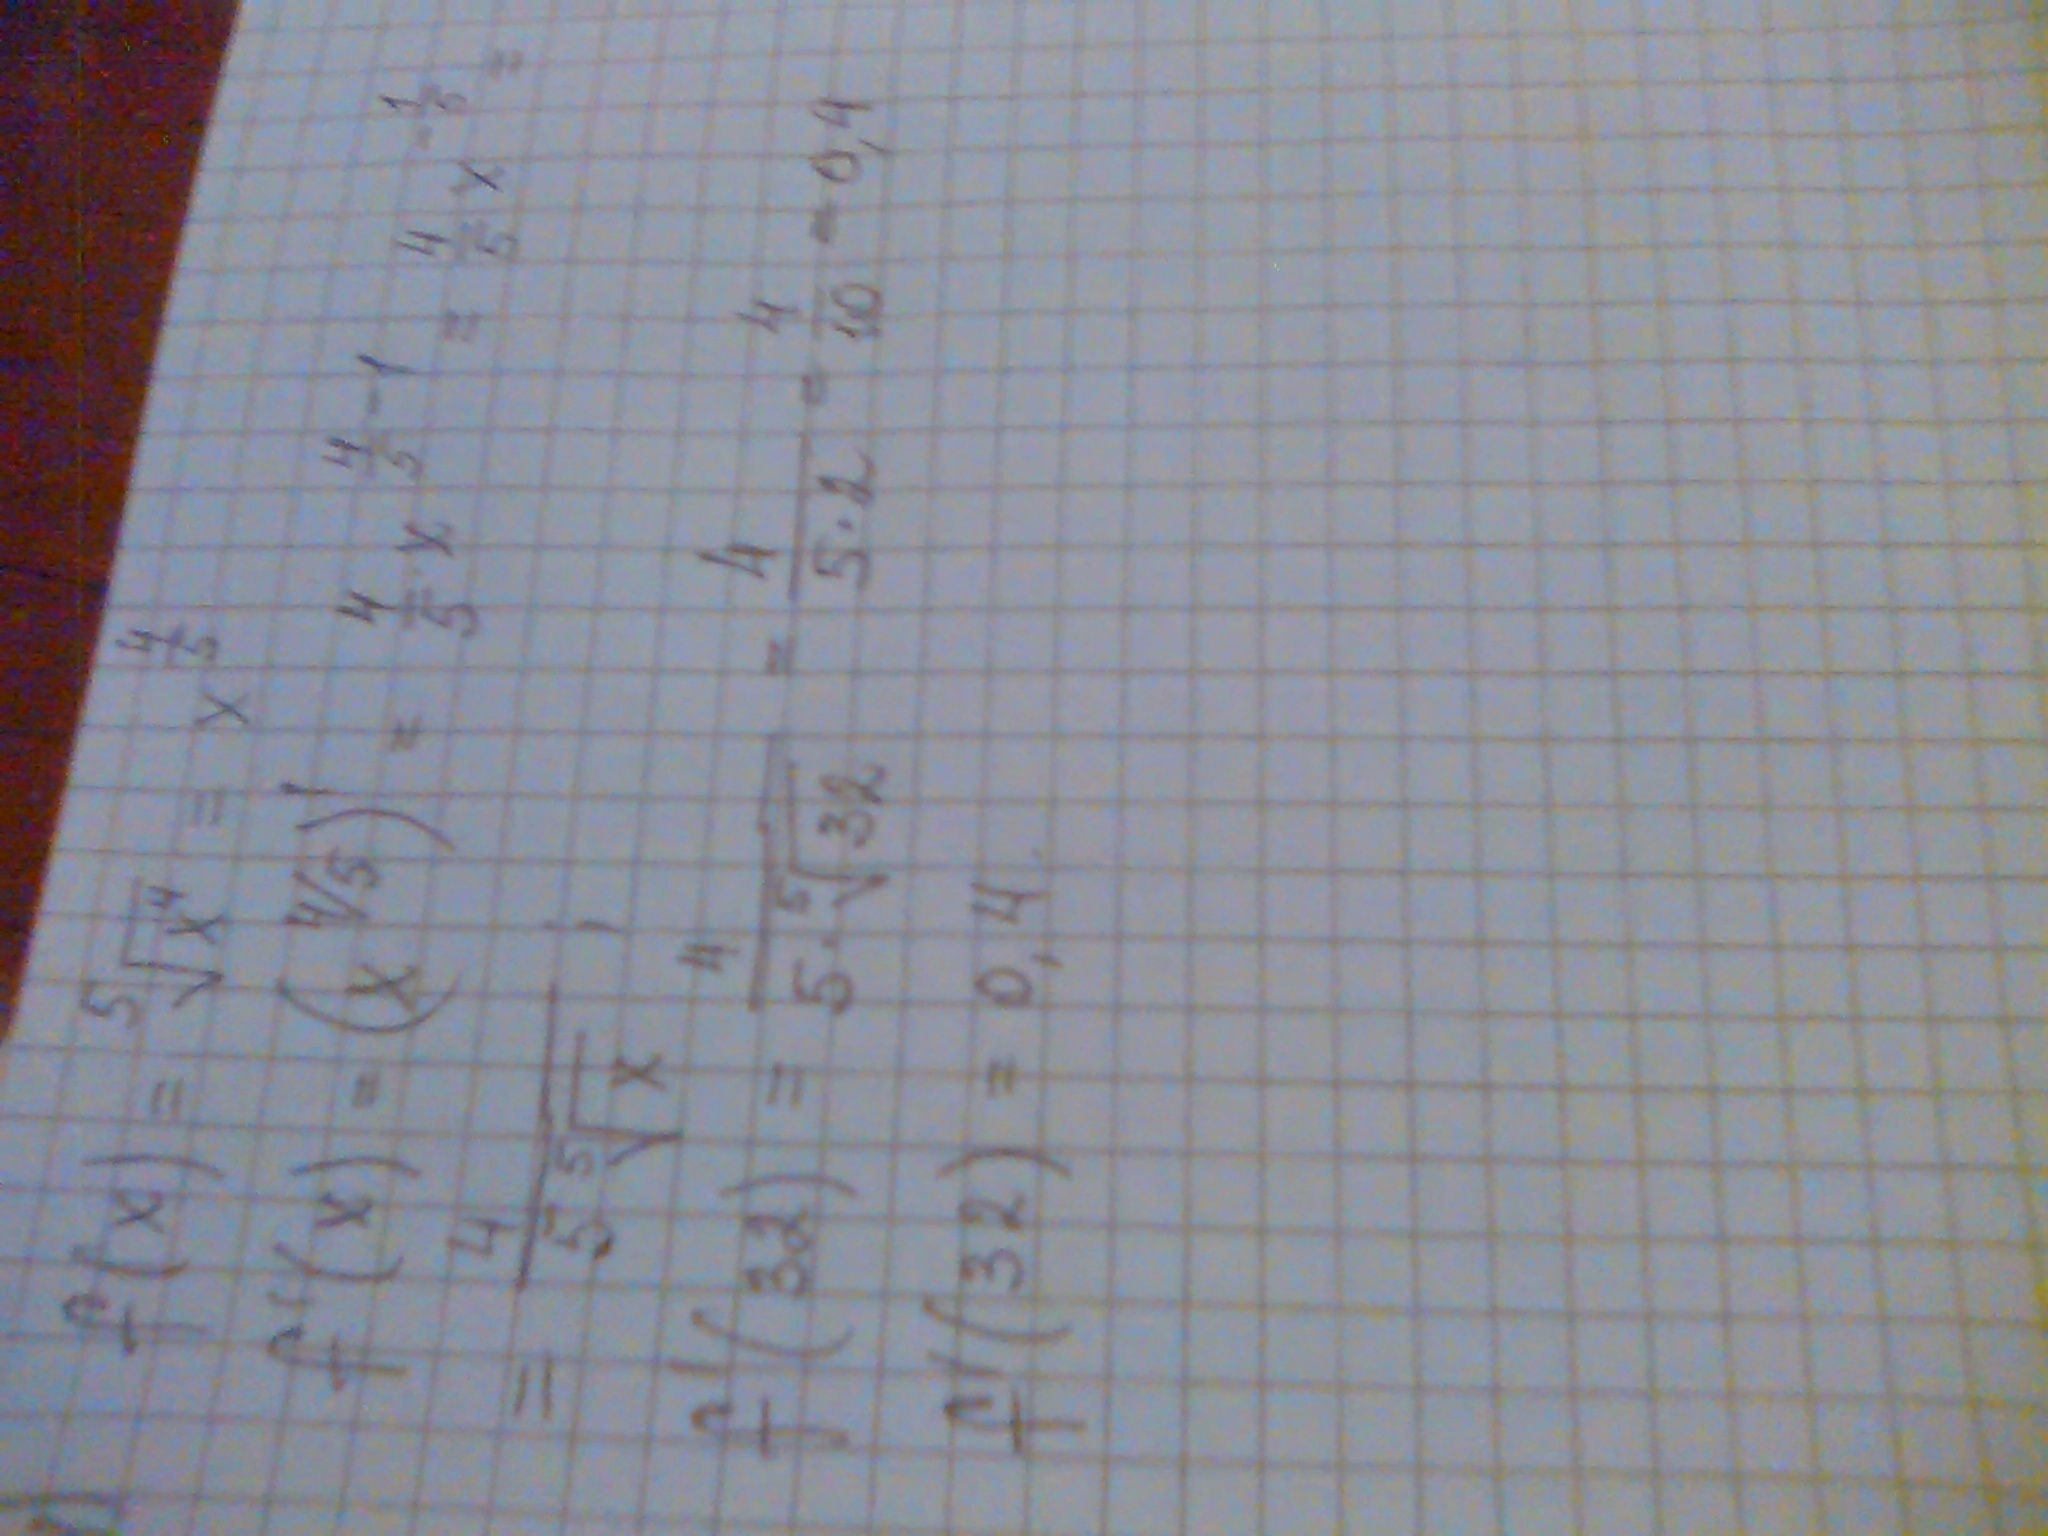 f(x) = ⁵√x⁴ = x^(4/5)
f'(x) = (x^(4/5))' = 4/5 · x^(4/5 - 1) = 4/5 x^(-1/5) =
= 4/(5 ⁵√x) ;
f'(32) = 4/(5 · ⁵√32) = 4/(5 · 2) = 4/10 = 0,4
f'(32) = 0,4.